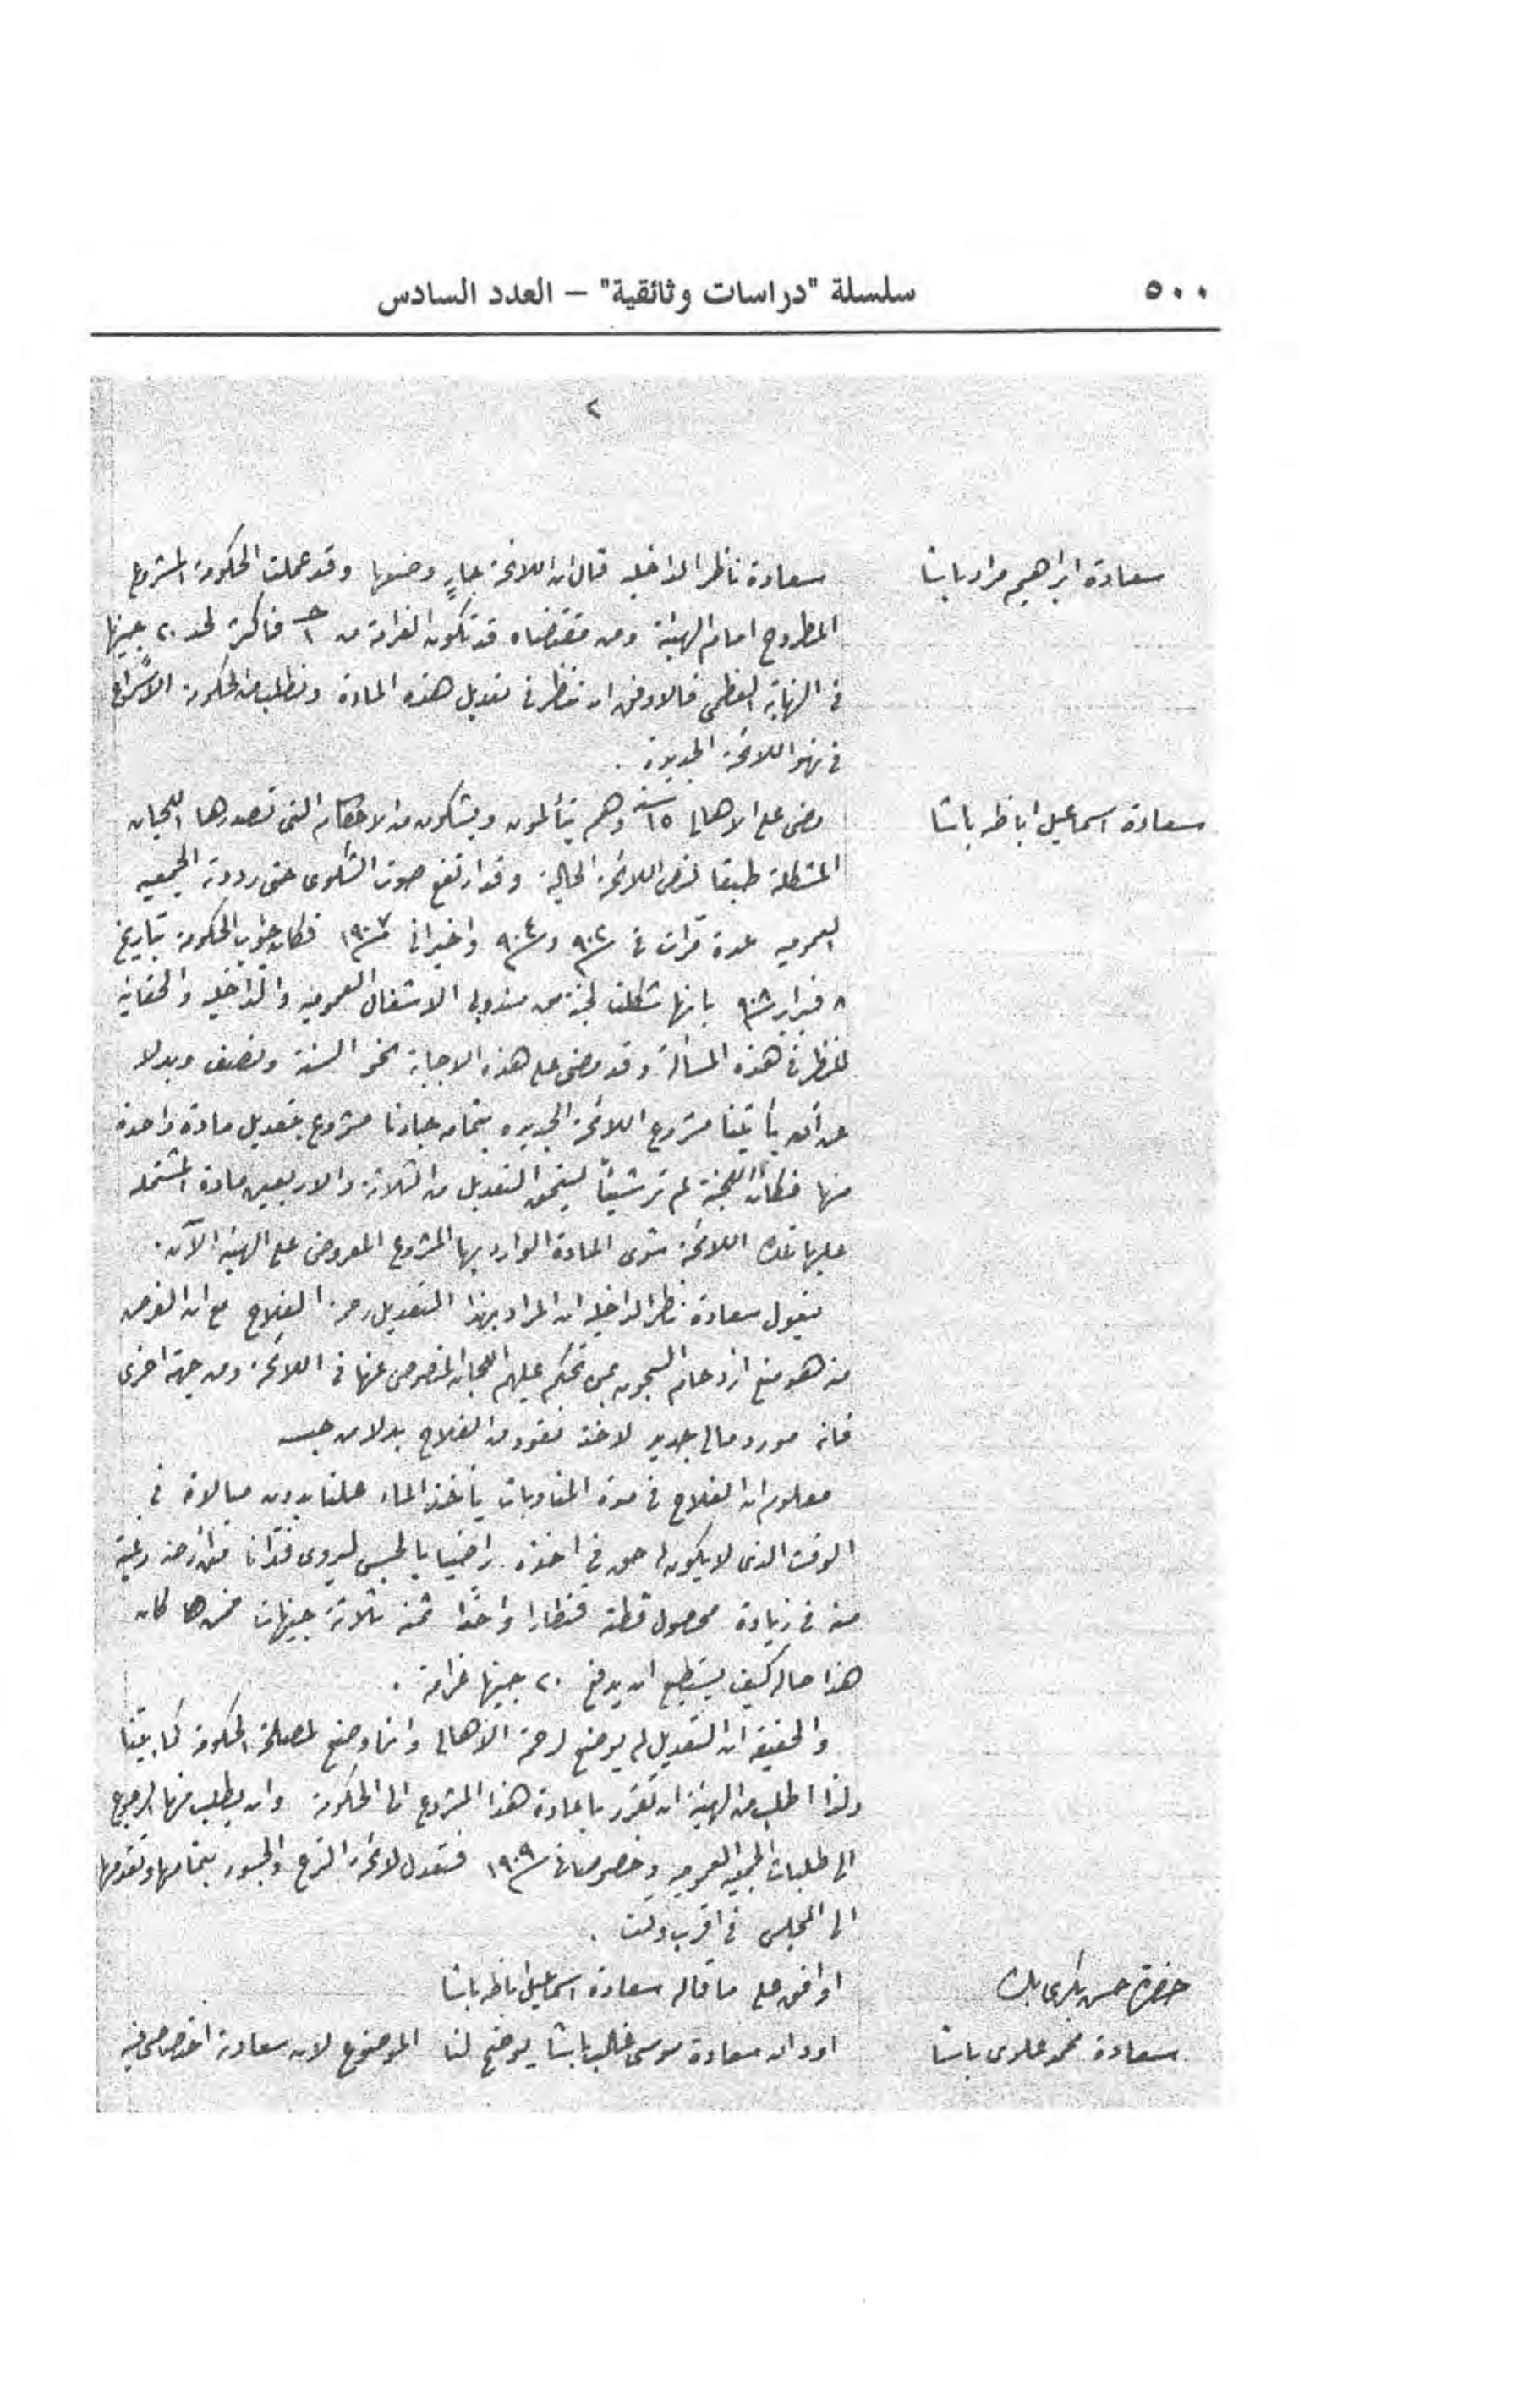 ٥٠٠
سلسلة "دراسات وثائقية" – العدد السادس
٢
سعادة ابراهيم مراد باشا
سعادة ناظر الداخلية قال ان اللائحة جارٍ وضعها وقد عملت الحكومة المشروع
المطروح امام الهيئة ومن مقتضاه قد تكون الغرامة من فاكثر لحد ٢٠ جنيها
فى النهاية العظمى فالاوفق ان ننظر فى تعديل هذه المادة ونطلب من الحكومة الاسراع
فى نهو اللائحة الجديدة .
سعادة اسماعيل اباظه باشا
مضى على الاهالى ١٥ سنة وهم يتألمون ويشكون من الاحكام التى تصدرها اللجان
المشكلة طبقا لنص اللائحة الحالية وقد ارتفع صوت الشكوى حتى رددته الجمعيه
العموميه عدة مرات فى سنة ٩٠٢ وسنة ٩٠٤ واخيرا فى سنة ١٩٠٧ فكان جواب الحكومة بتاريخ
٨ فبراير سنة ٩٠٨ بانها شكلت لجنة من مندوبى الاشغال العموميه والداخليه والحقانية
للنظر فى هذه المسألة وقد مضى على هذه الاجابة نحو السنة ونصف وبدلا
عن أن يأتينا مشروع اللائحة الجديده بتمامه جاءنا مشروع بتعديل مادة واحدة
منها فكأن اللجنة لم تر شيئاً يستحق التعديل من الثلاثة والاربعين مادة المشتملة
عليها تلك اللائحة سوى المادة الوارد بها المشروع المعروض على الهيئة الآن .
يقول سعادة ناظر الداخليه ان المراد بهذا التعديل رحمة الفلاح مع ان الغرض
منه هو منع ازدحام السجون بمن تحكم عليهم اللجان المنصوص عنها فى اللائحة ومن جهة اخرى
فانه مورد مالى جديد لاخذ نقود من الفلاح بدلا من حبسه
معلوم ان الفلاح فى مدة المناوبات يأخذ الماء علنا بدون مبالاة فى
الوقت الذى لا يكون له حق فى اخذه راضيا بالحبس ليروى فدانا من أرضه رغبة
منه فى زيادة محصول قطنه قنطارا واحدا ثمنه ثلاثة جنيهات فمن هذا كان
هذا حاله كيف يستطيع ان يدفع ٢٠ جنيها غرامة .
والحقيقة ان التعديل لم يوضع لرحمة الاهالى وانما وضع لمصلحة الحكومة كما بيّنا
ولذا اطلب من الهيئة ان تقرر باعادة هذا المشروع الى الحكومة وان يطلب منها الرجوع
الى طلبات الجمعيه العموميه وخصوصا فى سنة ١٩٠٩ فتعدل لائحة الترع والجسور بتمامها وتقدمها
الى المجلس فى اقرب وقت .
حضرة حسن بكرى بك
اوافق على ما قاله سعادة اسماعيل اباظه باشا
سعادة محمد علوى باشا
اود ان سعادة موسى غالب باشا يوضح لنا الموضوع لان سعادته اخصوصى فيه